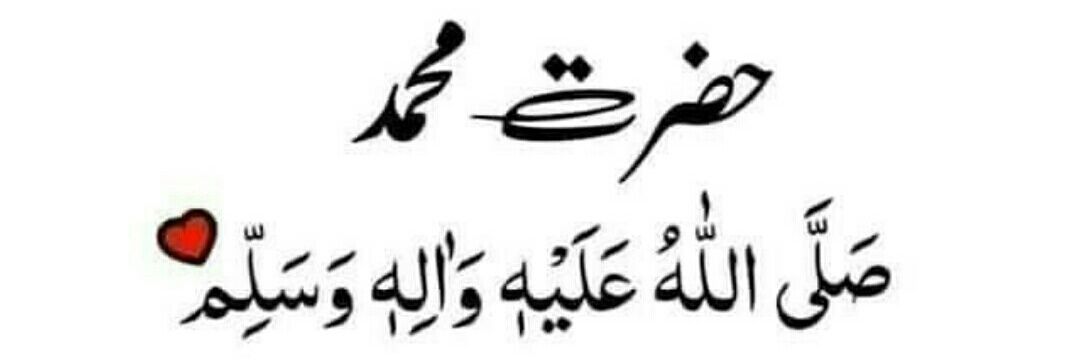 حضرت محمد
صَلَّی اللّٰهُ عَلَیْهِٖ وَاٰلِهٖ وَسَلِّم